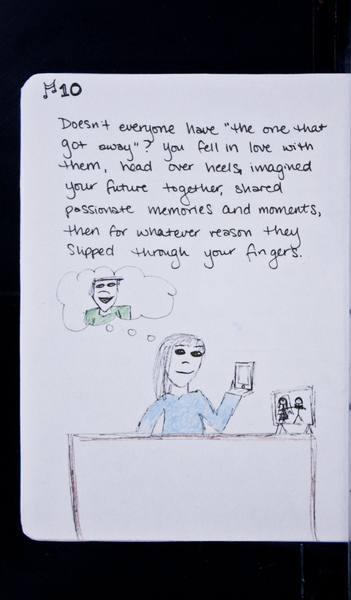 10
Doesn't everyone have "the one that
got away"? You fell in love with
them, head over heels, imagined
your future together, shared
passionate memories and moments,
then for whatever reason they
slipped through your fingers.